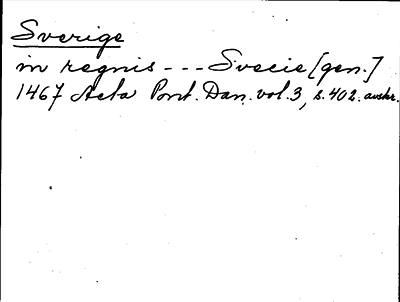 Sverige
in regnis --- Svecie [gen.]
1467 Acta Pont. Dan. vol. 3, s. 402. avskr.